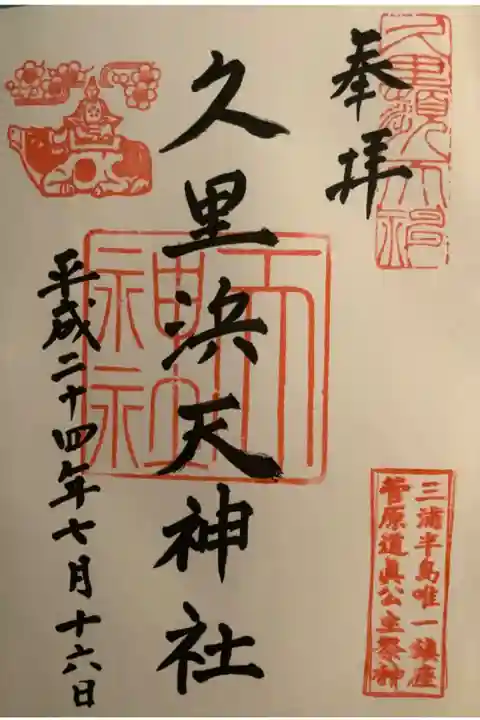 奉拝
三浦半島唯一鎮座
菅原道眞公主祭神
久里浜天神社
天神社
平成二十四年七月十六日